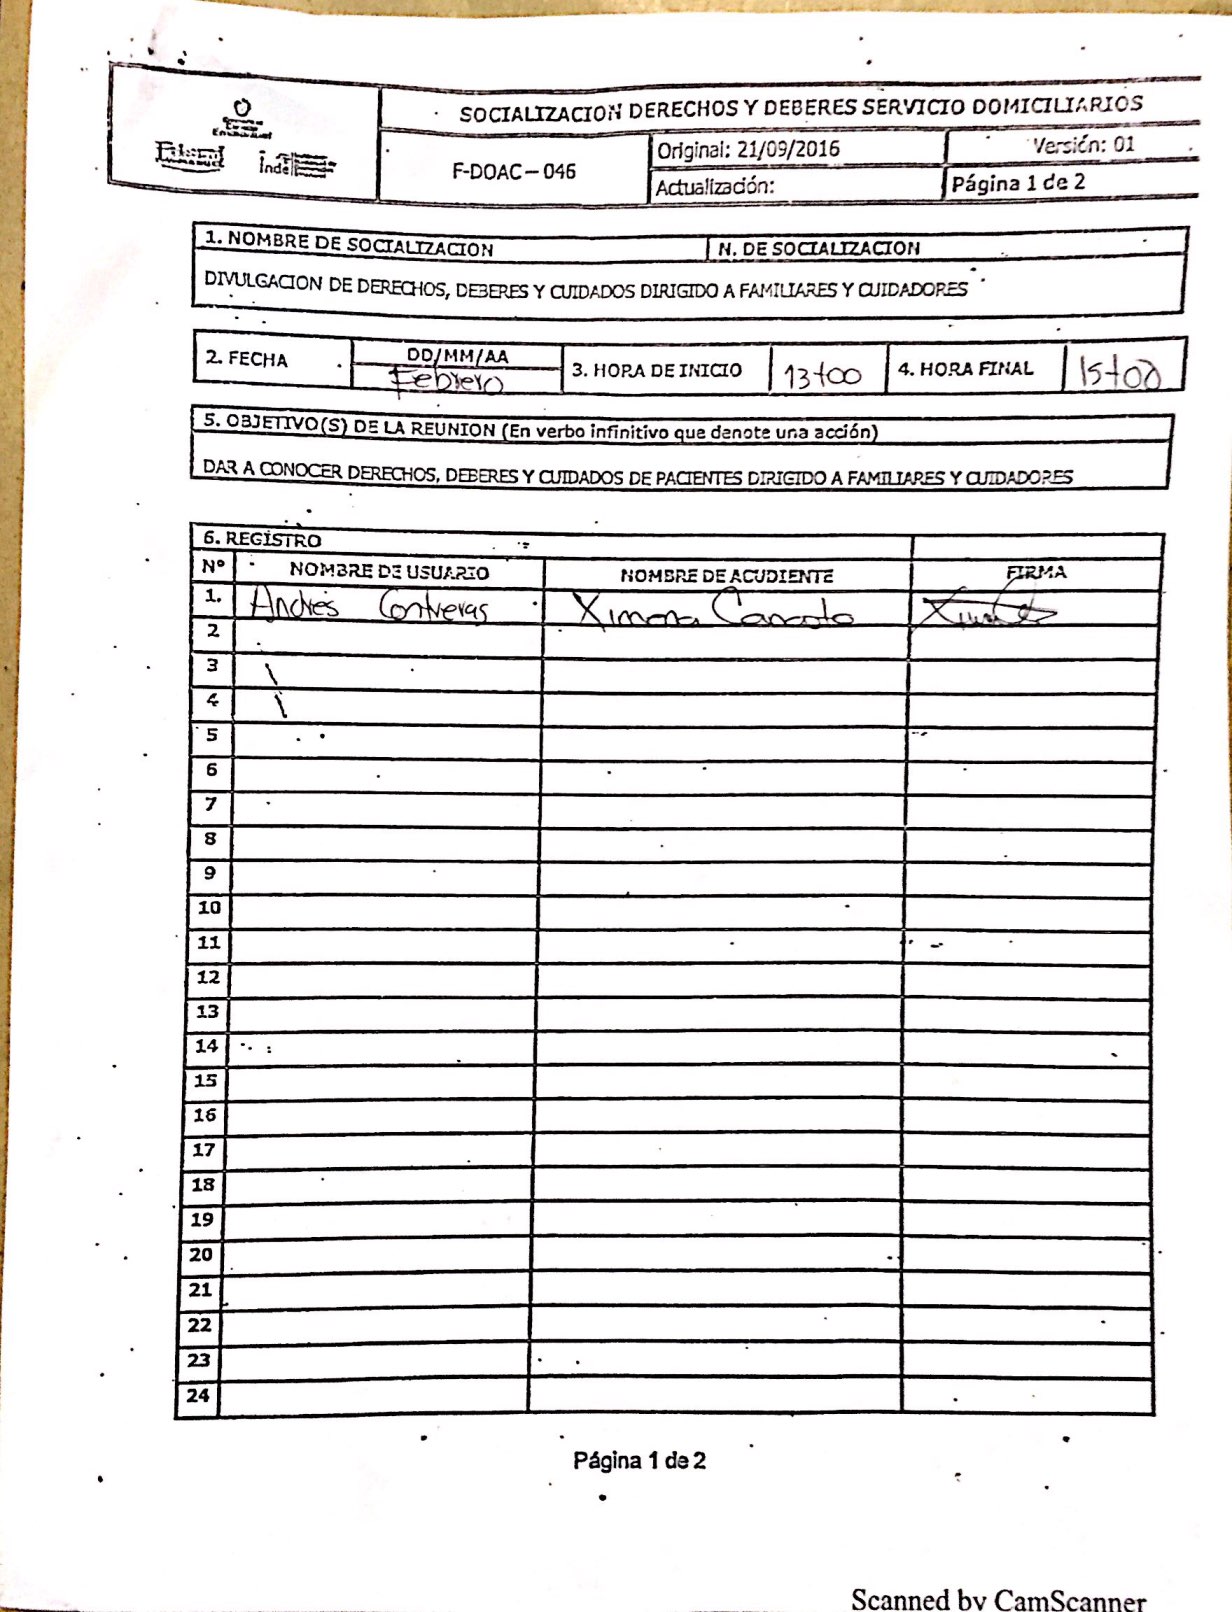 SOCIALIZACION DERECHOS Y DEBERES SERVICIO DOMICILIARIOS
F-DOAC - 046
Original: 21/09/2016
Versión: 01
Actualización:
Página 1 de 2
1. NOMBRE DE SOCIALIZACION
N. DE SOCIALIZACION
DIVULGACION DE DERECHOS, DEBERES Y CUIDADOS DIRIGIDO A FAMILIARES Y CUIDADORES
2. FECHA
DD/MM/AA
Febrero
3. HORA DE INICIO
13+00
4. HORA FINAL
15+00
5. OBJETIVO(S) DE LA REUNION (En verbo infinitivo que denote una acción)
DAR A CONOCER DERECHOS, DEBERES Y CUIDADOS DE PACIENTES DIRIGIDO A FAMILIARES Y CUIDADORES
6. REGISTRO
Nº NOMBRE DE USUARIO NOMBRE DE ACUDIENTE FIRMA
1. Andres Contreras Ximena
2
3
4
5
6
7
8
9
10
11
12
13
14
15
16
17
18
19
20
21
22
23
24
Página 1 de 2
Scanned by CamScanner